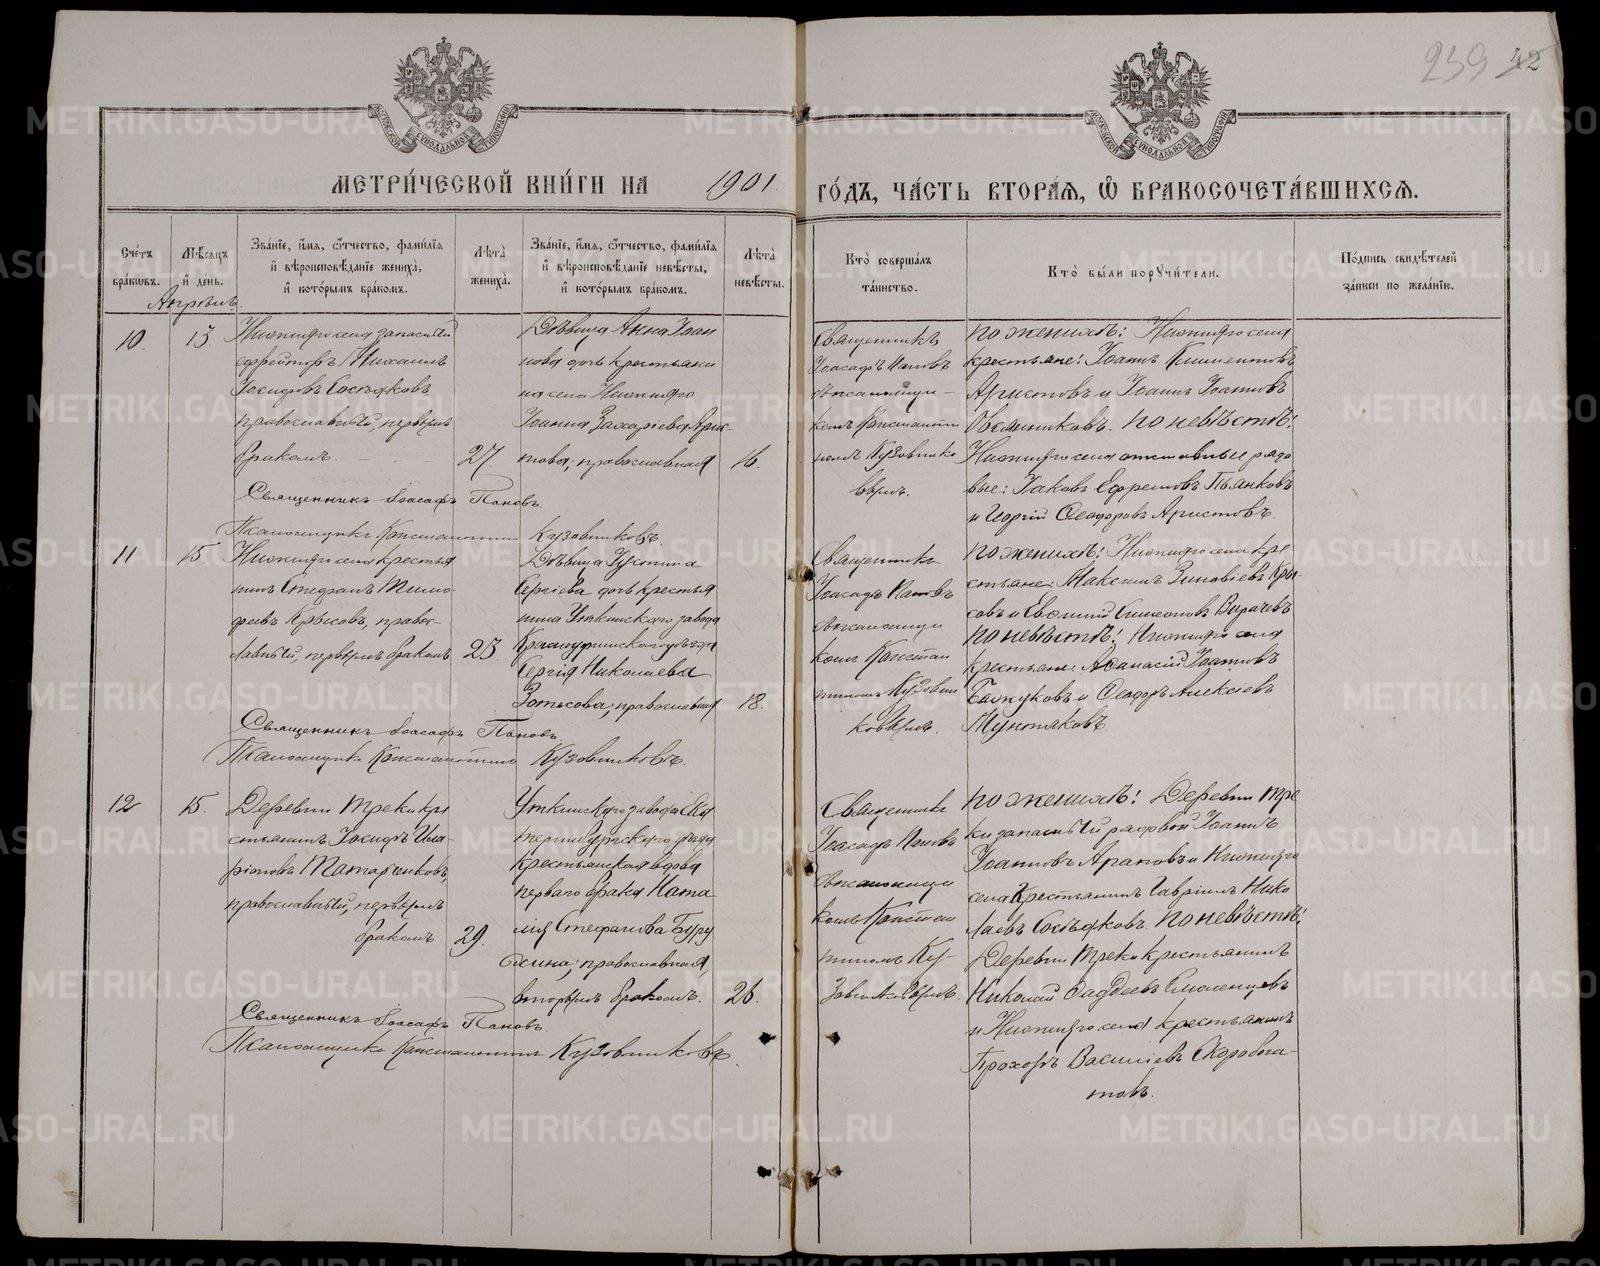 239 42
МОСКОВСКОЙ СѴНОДАЛЬНОЙ ТИПОГРАФІИ
МОСКОВСКОЙ СѴНОДАЛЬНОЙ ТИПОГРАФІИ
МЕТРИ́ЧЕСКОЙ КНИ́ГИ НА 1901 ГО́ДЪ, ЧА́СТЬ ВТОРА́Я, Ѡ҆ БРАКОСОЧЕТА́ВШИХСЯ.
Сче́тъ
бра́кѡвъ.
Мѣ́сяцъ
и҆ де́нь.
Зва́нїе, и҆́мя, ѻ҆́тчество, фами́лїя
и҆ вѣроисповѣ́данїе жениха̀,
и҆ кото́рымъ бра́комъ.
Лѣта̀
жениха̀.
Зва́нїе, и҆́мя, ѻ҆́тчество, фами́лїя
и҆ вѣроисповѣ́данїе невѣ́сты,
и҆ кото́рымъ бра́комъ.
Лѣта̀
невѣ́сты.
Кто̀ соверша́лъ
та́инство.
Кто̀ бы́ли порꙋчи́тели.
По́дпись свидѣ́телей
за́писи по жела́нїю.
Апрѣль.
10. 13.
запасный
ефрейторъ Михаилъ
Іосифовъ Сосѣдковъ
православный, первымъ
бракомъ. 27.
Дѣвица Анна Іоан
нова дочь крестьяни
на села
Іоанна Захаріева Арис-
това, православная 16.
Священникъ
Іоасафъ Пановъ
съ псаломщи-
комъ Константи
номъ Кузовнико
вымъ.
по женихѣ:
крестьяне: Іоаннъ Климентовъ
Аристовъ и Іоаннъ Іоанновъ
Овсянниковъ. по невѣстѣ:
отставные рядо
вые: Іаковъ Ефремовъ Пьянковъ
и Георгій Ѳеодоровъ Аристовъ.
Священникъ Іоасафъ Пановъ.
Псаломщикъ Константинъ Кузовниковъ.
11 15.
села крестья
нинъ Стефанъ Тимо-
феевъ Крысовъ, правос-
лавный, первымъ бракомъ 23
Дѣвица Іустина
Сергіева дочь крестья
нина Уткинскаго завода
Красноуфимскаго уѣзда
Сергія Николаева
Зотесова, православная 18.
Священникъ
Іоасафъ Пановъ
съ псаломщи
комъ Констан
тиномъ Кузовни
ковымъ.
по женихѣ: села кре
стьяне: Максимъ Зиновіевъ Кры-
совъ и Евѳимій Симеоновъ
по невѣстѣ: села
крестьяне: Аѳанасій Іоанновъ
и Ѳеодоръ Алексіевъ
Священникъ Іоасафъ Пановъ.
Псаломщикъ Константинъ Кузовниковъ.
12 15.
Деревни Треки кре
стьянинъ Іосифъ Ила
ріоновъ Татарченковъ,
православный, первымъ
бракомъ 29.
Уткинскаго завода Ека
теринбургскаго уѣзда
крестьянская вдова
перваго брака Ната
лія Стефанова Буру
хина, православная,
вторымъ бракомъ. 26.
Священникъ
Іоасафъ Пановъ
съ псаломщи
комъ Констан
тиномъ Ку-
зовниковымъ.
по женихѣ: Деревни Тре
ки запасный рядовой Іоаннъ
Іоанновъ Араповъ и
села крестьянинъ Гавріилъ Нико
лаевъ Сосѣдковъ. по невѣстѣ:
Деревни Треки крестьянинъ
Николай Фаддеевъ Смоленцовъ
и села крестьянинъ
Прохоръ Василіевъ Скоробога-
товъ.
Священникъ Іоасафъ Пановъ.
Псаломщикъ Константинъ Кузовниковъ.
METRIKI.GASO-URAL.RU